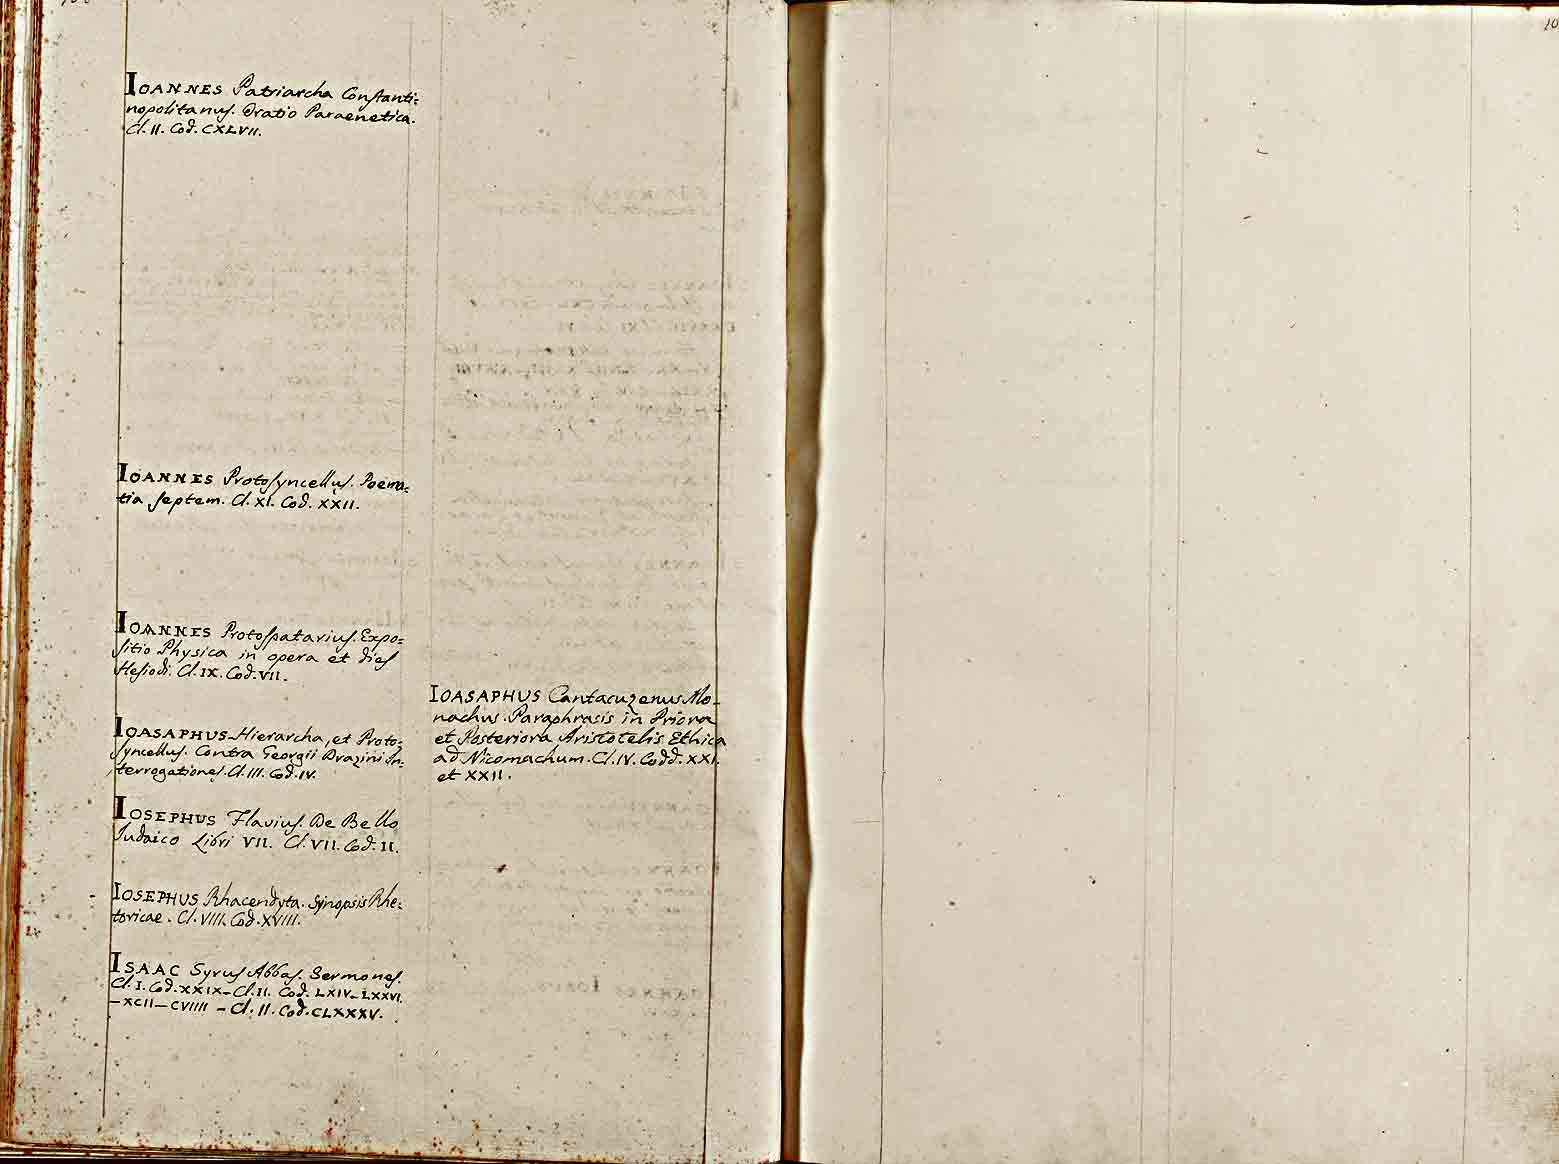 IOANNES Patriarcha Constanti=
nopolitanus. Oratio Paraenetica.
Cl. II. Cod. CXLVII.
IOANNES Protosyncellus. Poema=
tia septem. Cl. XI. Cod. XXII.
IOANNES Protospatarius. Expo=
sitio Physica in opera et dies
Hesiodi. Cl. IX. Cod. VII.
IOASAPHUS Hierarcha, et Proto=
syncellus. Contra Georgii Drazini In=
terrogationes. Cl. III. Cod. IV.
IOSEPHUS Flavius. De Bello
Judaico Libri VII. Cl. VII. Cod. II.
IOSEPHUS Rhacendyta. Synopsis Rhe=
toricae. Cl. VIII. Cod. XVIII.
ISAAC Syrus Abbas. Sermones.
Cl. I. Cod. XXIX – Cl. II. Cod. LXIV – LXXVI.
– XCII – CVIIII – Cl. II. Cod. CLXXXV.
IOASAPHUS Cantacuzenus Mo-
nachus. Paraphrasis in Priora
et Posteriora Aristotelis Ethica
ad Nicomachum. Cl. IV. Codd. XXI.
et XXII.